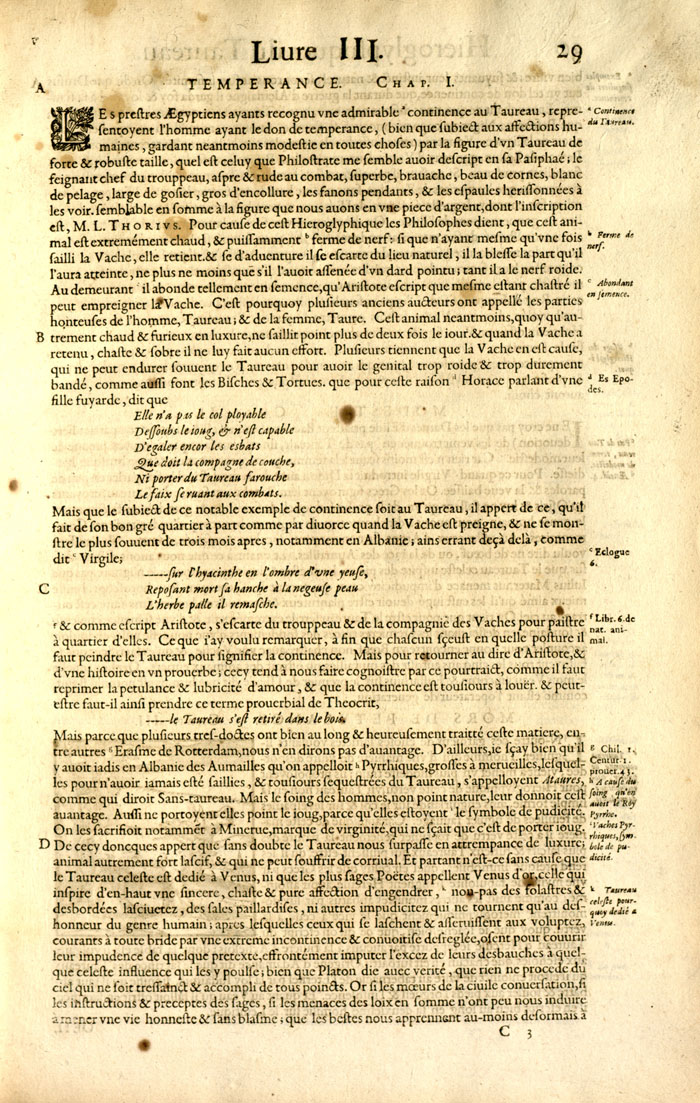 Liure III. 29
TEMPERANCE. CHAP. I.
A
LEs prestres Ægyptiens ayants recognu vne admirable a continence au Taureau, repre-
sentoyent l'homme ayant le don de temperance, (bien que subiect aux affections hu-
maines, gardant neantmoins modestie en toutes choses) par la figure d'vn Taureau de
forte & robuste taille, quel est celuy que Philostrate me semble auoir descript en sa Pasiphaé; le
feignant chef du trouppeau, aspre & rude au combat, superbe, brauache, beau de cornes, blanc
de pelage, large de gosier, gros d'encollure, les fanons pendants, & les espaules herissonnées à
les voir. semblable en somme à la figure que nous auons en vne piece d'argent, dont l'inscription
est, M. L. THORIVS. Pour cause de cest Hieroglyphique les Philosophes dient, que cest ani-
mal est extremément chaud, & puissamment b ferme de nerf: si que n'ayant mesme qu'vne fois
sailli la Vache, elle retient. & se d'aduenture il se escarte du lieu naturel, il la blesse la part qu'il
l'aura atteinte, ne plus ne moins que s'il l'auoit assenée d'vn dard pointu; tant il a le nerf roide.
Au demeurant c il abonde tellement en semence, qu'Aristote escript que mesme estant chastré il
peut empreigner la Vache. C'est pourquoy plusieurs anciens aucteurs ont appellé les parties
honteuses de l'homme, Taureau; & de la femme, Taure. Cest animal neantmoins, quoy qu'au-
B trement chaud & furieux en luxure, ne saillit point plus de deux fois le iour. & quand la Vache a
retenu, chaste & sobre il ne luy fait aucun effort. Plusieurs tiennent que la Vache en est cause,
qui ne peut endurer souuent le Taureau pour auoir le genital trop roide & trop durement
bandé, comme aussi font les Bisches & Tortues. que pour ceste raison d Horace parlant d'vne
fille fuyarde, dit que
Elle n'a pas le col ployable
Dessoubs le ioug, & n'est capable
D'egaler encor les esbats
Que doit la compagne de couche,
Ni porter du Taureau farouche
Le faix se ruant aux combats.
Mais que le subiect de ce notable exemple de continence soit au Taureau, il appert de ce, qu'il
fait de son bon gré quartier à part comme par diuorce quand la Vache est preigne, & ne se mon-
stre le plus souuent de trois mois apres, notamment en Albanie; ains errant deçà delà, comme
dit e Virgile;
-----sur l'hyacinthe en l'ombre d'vne yeuse,
C Reposant mort sa hanche à la negeuse peau
L'herbe palle il remasche.
f & comme escript Aristote, s'escarte du trouppeau & de la compagnie des Vaches pour paistre
à quartier d'elles. Ce que i'ay voulu remarquer, à fin que chascun sçeust en quelle posture il
faut peindre le Taureau pour signifier la continence. Mais pour retourner au dire d'Aristote, &
d'vne histoire en vn prouerbe; cecy tend à nous faire cognoistre par ce pourtraict, comme il faut
reprimer la petulance & lubricité d'amour, & que la continence est tousiours à louër. & peut-
estre faut-il ainsi prendre ce terme prouerbial de Theocrit,
-----le Taureau s'est retiré dans le bois.
Mais parce que plusieurs tres-doctes ont bien au long & heureusement traitté ceste matiere, en-
tre autres g Erasme de Rotterdam, nous n'en dirons pas d'auantage. D'ailleurs, ie sçay bien qu'il
y auoit iadis en Albanie des Aumailles qu'on appelloit h Pyrrhiques, grosses à merueilles, lesquel-
les pour n'auoir iamais esté saillies, & tousiours sequestrées du Taureau, s'appelloyent Ataures,
comme qui diroit Sans-taureau. Mais le soing des hommes, non point nature, leur donnoit cest
auantage. Aussi ne portoyent elles point le ioug, parce qu'elles estoyent i le symbole de pudicité.
On les sacrifioit notammẽt à Minerue, marque de virginité, qui ne sçait que c'est de porter ioug.
D De cecy doncques appert que sans doubte le Taureau nous surpasse en attrempance de luxure;
animal autrement fort lascif, & qui ne peut souffrir de corriual. Et partant n'est-ce sans cause que
le Taureau celeste est dedié à Venus, ni que les plus sages Poëtes appellent Venus d'or, celle qui
inspire d'en-haut vne sincere, chaste & pure affection d'engendrer, k non-pas des folastres &
desbordées lasciuetez, des sales paillardises, ni autres impudicitez qui ne tournent qu'au des-
honneur du genre humain; apres lesquelles ceux qui se laschent & asseruissent aux voluptez,
courants à toute bride par vne extreme incontinence & conuoitise desreglée, osent pour couurir
leur impudence de quelque pretexte, effrontément imputer l'excez de leurs desbauches à quel-
que celeste influence qui les y poulse; bien que Platon die auec verité, que rien ne procede du
ciel qui ne soit tressainct & accompli de tous poincts. Or si les mœurs de la ciuile conuersation, si
les instructions & preceptes des sages, si les menaces des loix en somme n'ont peu nous induire
a mener vne vie honneste & sans blasme; que les bestes nous apprennent au-moins desormais à
C 3
a Continence
du Taureau.
b Ferme de
nerf.
c Abondant
en semence.
d Es Epo-
des.
e Eclogue
6.
f Libr. 6. de
nat. ani-
mal.
g Chil. 1.
Centur. 1.
prouer. 43.
h A cause du
soing qu'en
auoit le Roy
Pyrrhe.
i Vaches Pyr-
rhiques, sym-
bole de pu-
dicité.
k Taureau
celeste pour-
quoy dedié a
Venus.